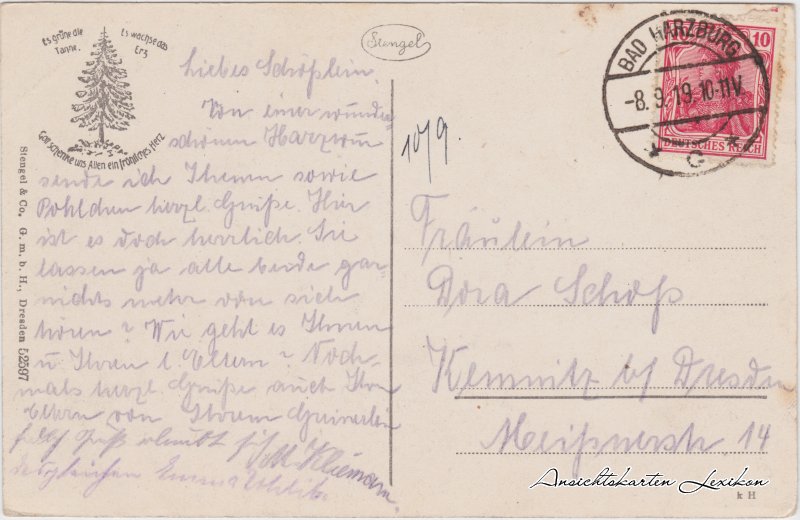 Es grüne die
Tanne,
Es wachse das
Erz
Gott schenke uns Allen ein fröhliches Herz
Stengel
Liebes Schöpslein.
Von einer wunder
schönen Harztour
sende ich Ihnen sowie
herzl. Grüße. Hier
ist es doch herrlich. Sie
lassen ja alle beide gar-
nichts mehr von sich
hören? Wie geht es Ihnen
u Ihren l. Eltern? Noch-
mals herzl. Grüße auch Ihren
Eltern von Ihrem
desgleichen Emma
Stengel & Co., G. m. b. H., Dresden 52597
10/9.
BAD HARZBURG
-8.9.19.10-11V
* G *
10
DEUTSCHES REICH
Fräulein
Dora Schöps
Kemnitz b/ Dresden
Meißnerstr 14
Ansichtskarten Lexikon
k H